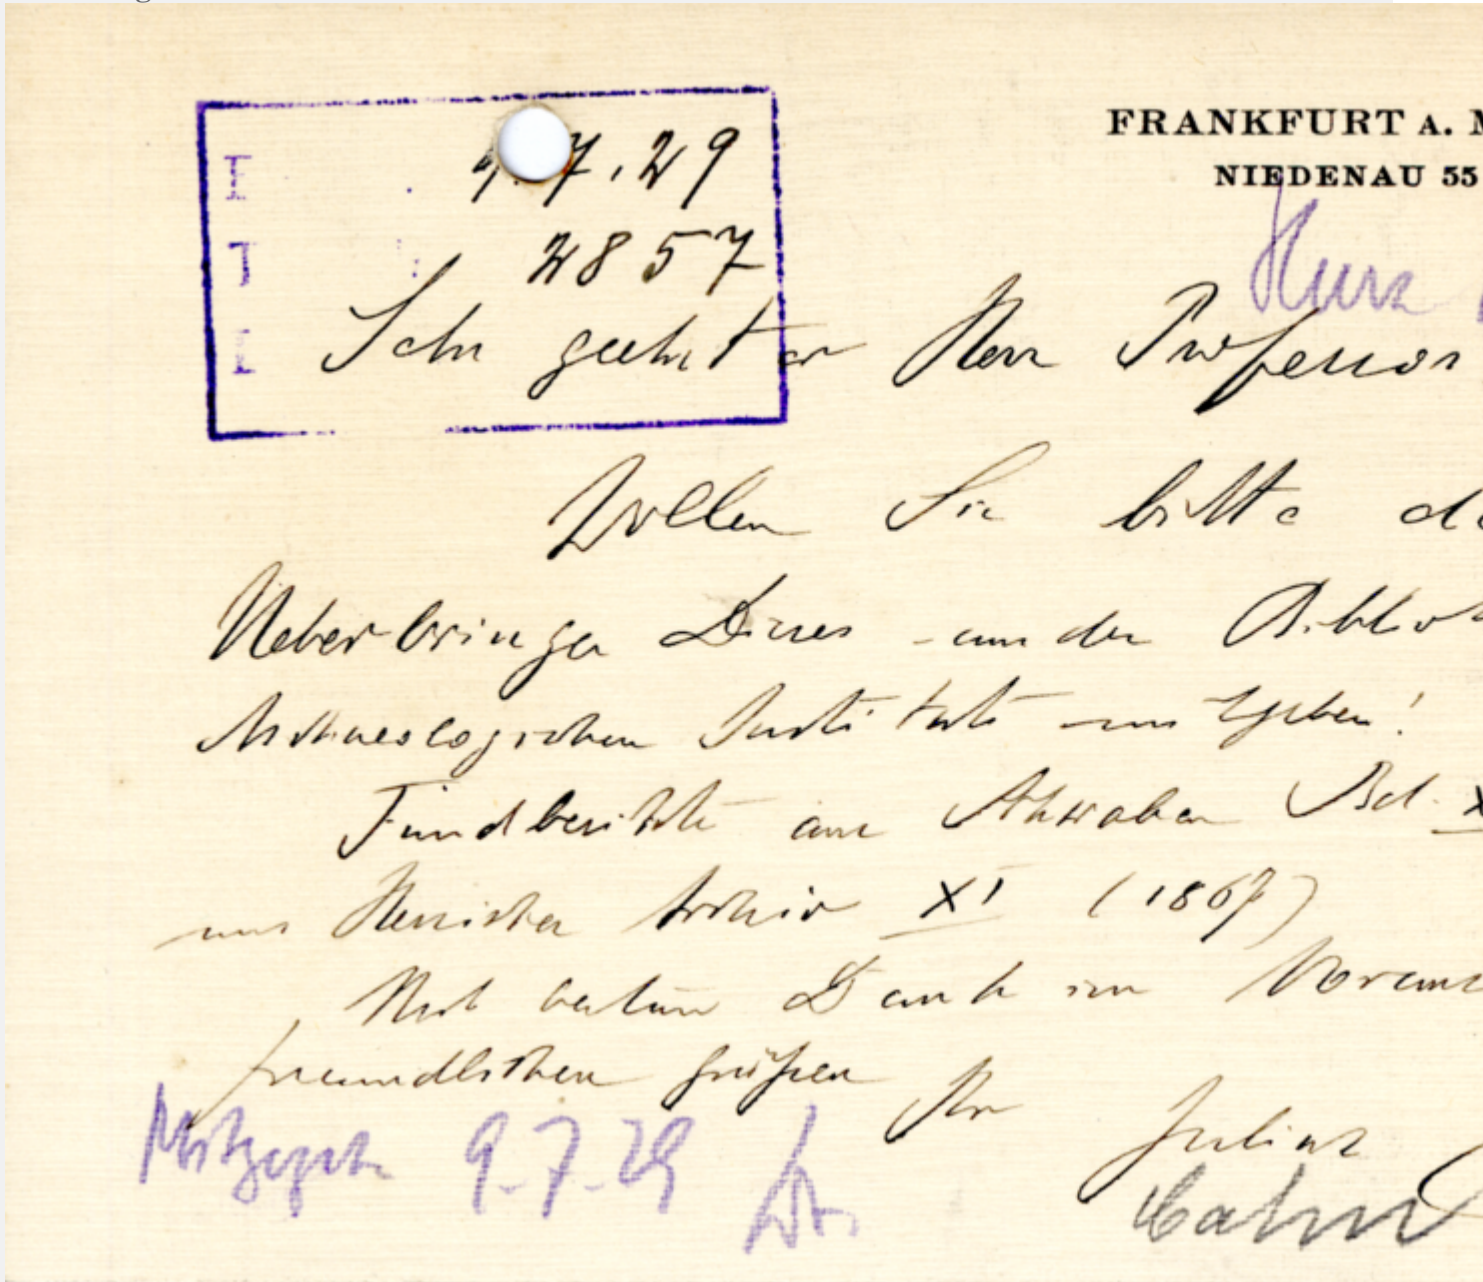 FRANKFURT A. M
NIEDENAU 55
E
9.7.29
J
2857
E
Sehr geehrter Herr Professor
Wollen Sie bitte de
Ueberbringer Dieses aus der Biblioth
Archaeologischen Instituts mitgeben!
Fundberichte aus Schwaben Bd. X
und Hessisches Archiv XI (1867)
Mit bestem Dank im Voraus
freundlichen Grüßen
Ihr Julius
Cahn
Mitgegeb. 9.7.29